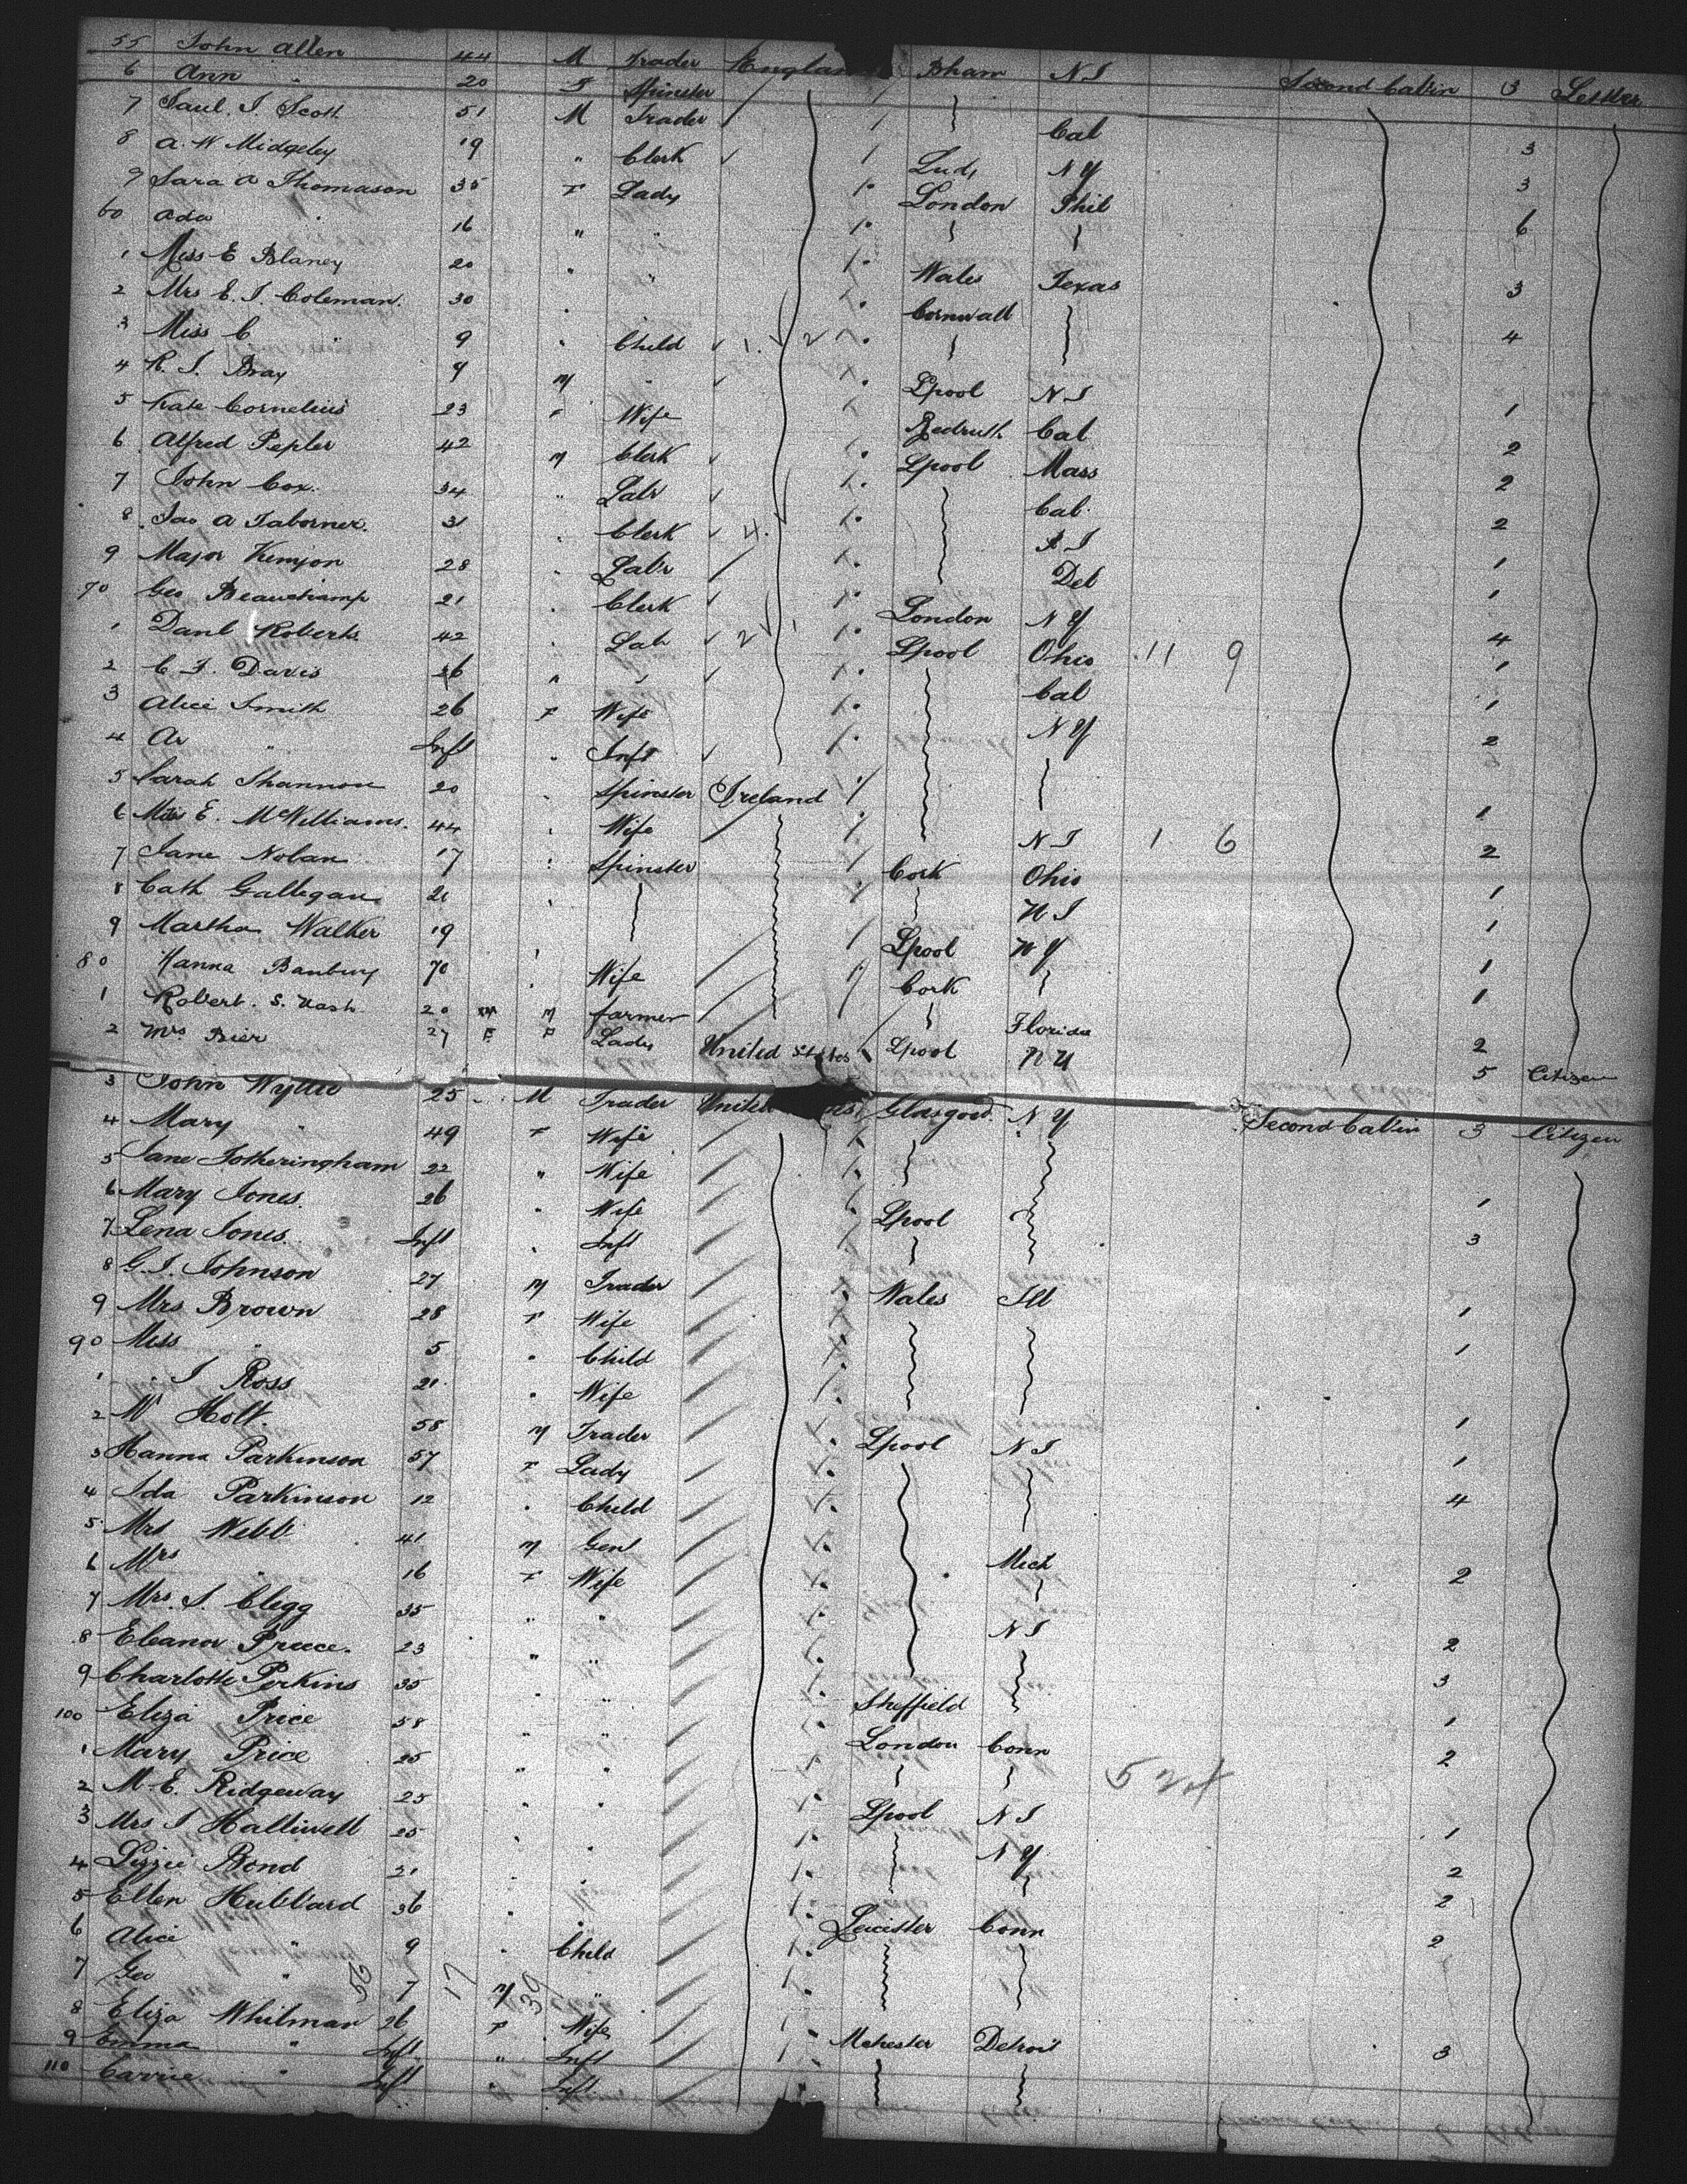 55 John Allen 44 M Trader England Bham N J Second Cabin 3 Settler
6 Ann " 20 F Spinster
7 Saml. J. Scott 51 M Trader Cal 3
8 A. W Midgeley 19 " Clerk N Y 3
9 Sara A Thomason 35 F Lady London Phil 6
60 Ada " 16 " "
1 Miss E Blaney 20 " " Wales Texas 3
2 Mrs E. J. Coleman. 30 " " Cornwall 4
3 Miss C " 9 " Child
4 R. J. Bray 9 M " Lpool N J 1
5 Kate Cornelius 23 F Wife Redruth Cal 2
6 Alfred Pepler 42 M Clerk Lpool Mass 2
7 John Cox. 34 " Labr Cal. 2
8 Jas A Taborner. 31 " Clerk 4. 1
9 Major Kenyon 28 " Labr Del 1
70 Geo Beauchamp 21 " Clerk London N Y 4
1 Danl Roberts 42 " Lab 2 Lpool Ohio 11 9 1
2 C. J. Davis 36 " " Cal 1
3 Alice Smith 26 F Wife N Y 2
4 Ar " Inft " Inft
5 Sarah Shannon 20 " Spinster Ireland 1
6 Miss E. McWilliams. 44 " Wife N J 1 6 2
7 Jane Nolan 17 " Spinster Cork Ohio 1
8 Cath Gallegan 21 " N J 1
9 Martha Walker 19 " Lpool N Y 1
80 Hanna Banbury 70 " Wife Cork 1
1 Robert. S. Nash 20 M M farmer Florida 2
2 Mrs. Bier 27 F F Lady United States Lpool N Y 5 Citizen
3 John Wyllie 25 M Trader United Glasgow. N Y Second Cabin 3 Citizen
4 Mary " 49 F Wife
5 Jane Fotheringham 22 " Wife 1
6 Mary Jones. 26 " Wife Lpool 3
7 Lena Jones. Inft " Inft
8 G. J. Johnson 27 M Trader Wales Ill 1
9 Mrs Brown 28 F Wife 1
90 Miss " 5 " Child
1 " J Ross 21 " Wife 1
2 W Holt. 58 M Trader Lpool N J 1
3 Hanna Parkinson 57 F Lady 4
4 Ida Parkinson 12 " Child
5 Mrs Webb 41 M Genl Mich 2
6 Mrs " 16 F Wife
7 Mrs. J. Clegg 35 " " N J 2
8 Eleanor Preece. 23 " " 3
9 Charlotte Perkins 35 " " Sheffield 1
100 Eliza Price 58 " " London Conn 2
1 Mary Price 25 " "
2 M. E. Ridgeway 25 " " Lpool N J 1
3 Mrs J Halliwell 25 " " N Y 2
4 Lizzie Bond 21 " " 2
5 Ellen Hubbard 36 " " Leicister Conn 2
6 Alice " 9 " Child
7 Geo " 56 7 17 M 39 "
8 Eliza Whitman 26 F Wife Mchester Detroit 3
9 Emma " Inft " Inft
110 Carrie " Inft " Inft.